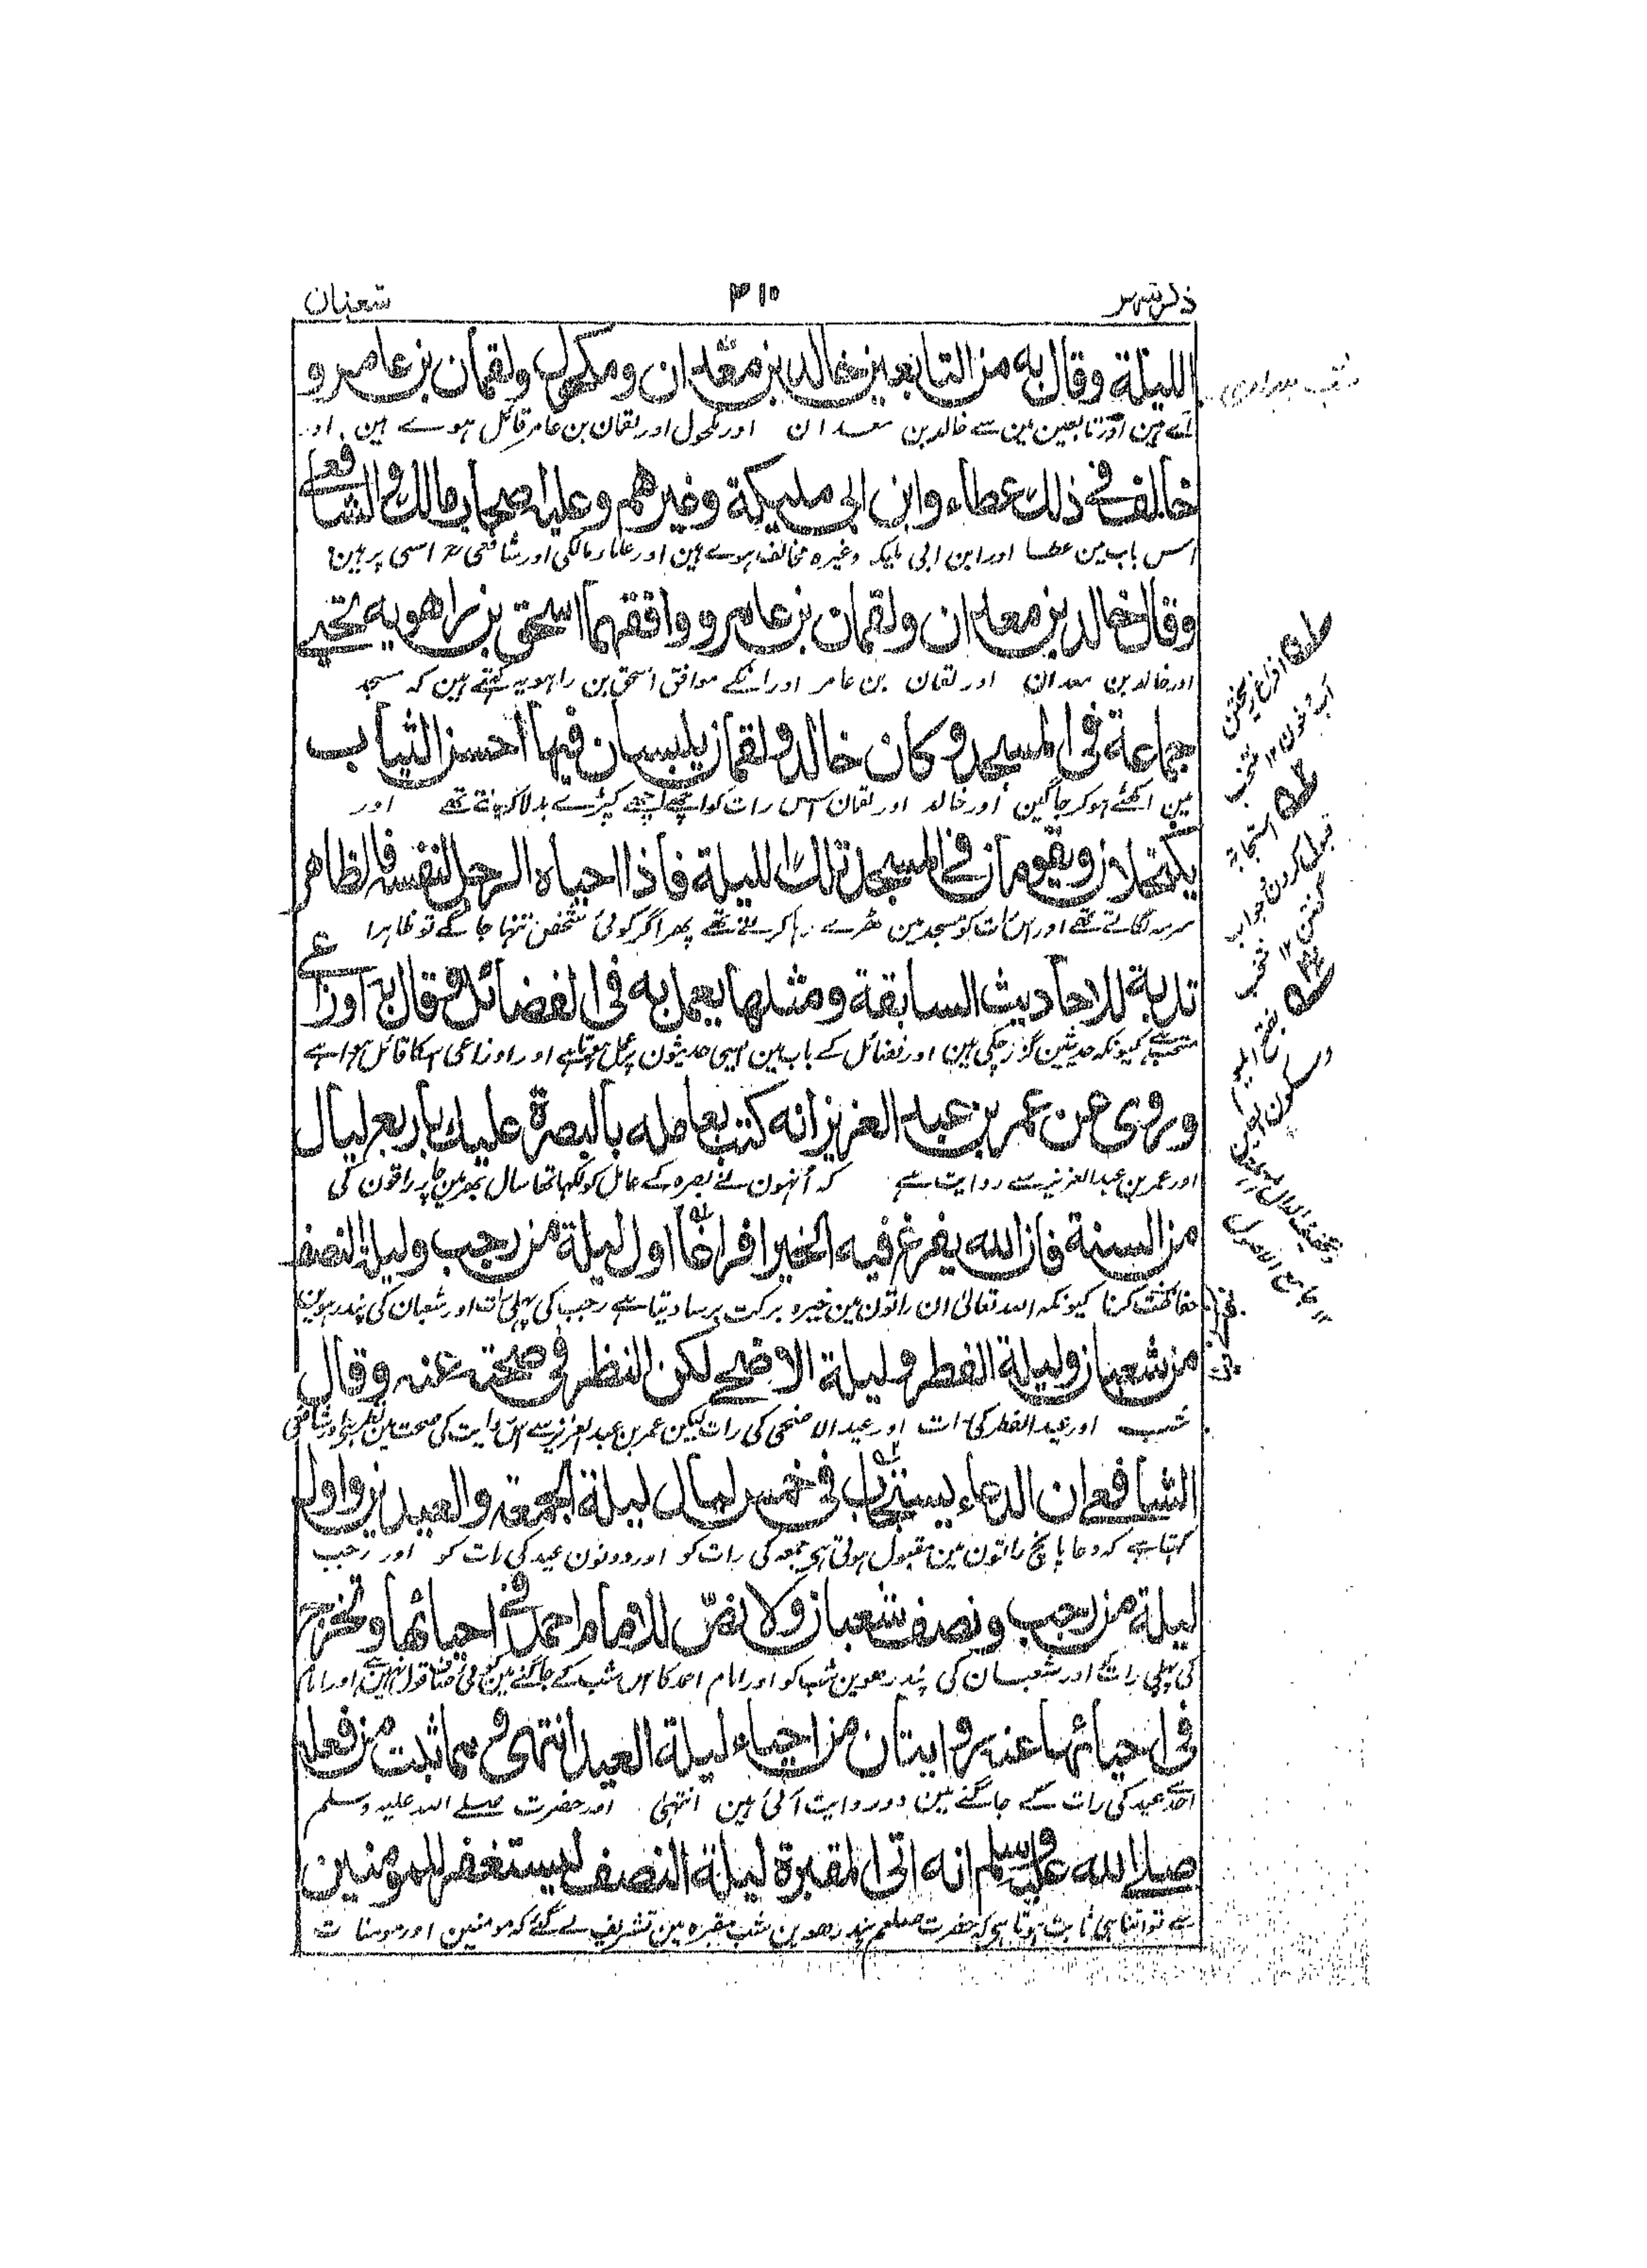 ذكر شهر ۳۱۰ شعبان
الليلة وقال به من التابعين خالد بن معدان ومكحول ولقمان بن عامر و
آئے ہین اور تابعین مین سے خالد بن معدان اور مکحول اور لقمان بن عامر قائل ہوے ہین. اور
خالف في ذلك عطاء وابن ابي مليكة وغيرهم وعليه اصحاب مالك والشافعي
اس باب مین عطا اور ابن ابی ملیکہ وغیرہ مخالف ہوے ہین اور علماء مالکی اور شافعی اسی پر ہین
وقال خالد بن معدان ولقمان بن عامر ووافقهما اسحق بن راهويه تحيى
اور خالد بن معدان اور لقمان بن عامر اور انکے موافق اسحق بن راہویہ کہتے ہین کہ مسجد
جماعة في المسجد وكان خالد ولقمان يلبسان فيها احسن الثياب
مین اکھٹے ہوکر جاگین اور خالد اور لقمان اس رات کو اچھے اچھے کپڑے بدلا کرتے تھے اور
يكتحلان ويقومان في المسجد تلك الليلة فاذا احياه الرجل لنفسه فالظاهر
سرمہ لگاتے تھے اور اس رات کو مسجد مین کھڑے رہا کرتے تھے پھر اگر کوئی شخص تنہا جاگے تو ظاہرا
ندبة للاحاديث السابقة ومثلها يعمل به في الفضائل وقال به الاوزاعي
مستحب ہے کیونکہ حدیثین گزر چکی ہین اور فضائل کے باب مین ایسی حدیثون پر عمل ہوتا ہے اور اوزاعی اسکا قائل ہوا ہے
وروى عن عمر بن عبد العزيز انه كتب بعامله بالبصرة عليك باربع ليال
اور عمر بن عبد العزیز سے روایت ہے کہ اُنہون نے بصرہ کے عامل کو لکھا تھا سال بھر مین چار راتون کی
من السنة فان الله يفرغ فيه الخير افراغا اول ليلة من رجب وليلة النصف
محافظت کرنا کیونکہ اللہ تعالیٰ ان راتون مین خیر و برکت برسا دیتا ہے رجب کی پہلی رات اور شعبان کی پندرہوین
من شعبان وليلة الفطر وليلة الاضحى لكن النظر في صحته عنه وقال
شب اور عید الفطر کی رات اور عید الاضحی کی رات لیکن عمر بن عبد العزیز سے اس روایت کی صحت مین نظر ہے اور شافعی
الشافعي ان الدعاء يستجاب في خمس ليال ليلة الجمعة والعيدين واول
کہتا ہے کہ دعا پانچ راتون مین مقبول ہوتی ہی جمعہ کی رات کو اور دونون عید کی رات کو اور رجب
ليلة من رجب ونصف شعبان ولا نصّ للامام احمد في احيائها وتخرج
کی پہلی رات کو اور شعبان کی پندرھوین شب کو اور امام احمد کا اس شب کے جاگنے مین کوئی صاف قول نہین ہے اور امام
في احيائها عنه روايتان من احياء ليلة العيد انتهى ومما ثبت من فعله
احمد سے عید کی رات کے جاگنے مین دو روایت آئی ہین انتہیٰ اور حضرت صلے اللہ علیہ وسلم
صلى الله عليه وسلم انه اتى المقبرة ليلة النصف ليستغفر للمومنين
سے تو اتنا ہی ثابت ہوتا ہی کہ حضرت صلعم پندرھوین شب مقبرہ مین تشریف لے گئے کہ مومنین اور مومنات
افراغ ریختن
آب و خون ۱۲ منتخب
استجابة
قبول کردن و جواب
گفتن ۱۲ منتخب